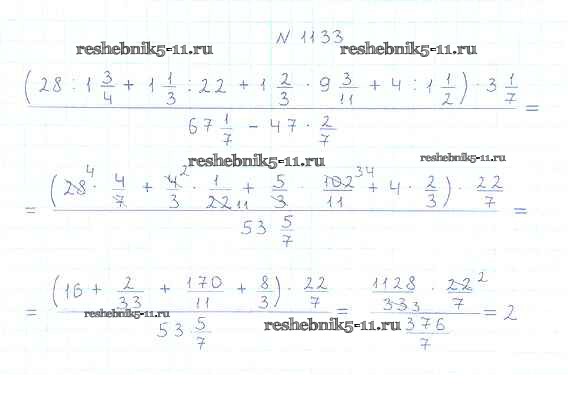 N 1133
reshebnik5-11.ru reshebnik5-11.ru
(28 : 1 3/4 + 1 1/3 : 22 + 1 2/3 · 9 3/11 + 4 : 1 1/2) · 3 1/7 =
67 1/7 - 47 · 2/7
reshebnik5-11.ru reshebnik5-11.ru
= (28 4 · 4/7 + 4 2/3 · 1/22 11 + 5/3 · 102 34/11 + 4 · 2/3) · 22/7 =
53 5/7
= (16 + 2/33 + 170/11 + 8/3) · 22/7 = 1128/33 3 · 22 2/7 = 2
reshebnik5-11.ru reshebnik5-11.ru
53 5/7 376/7